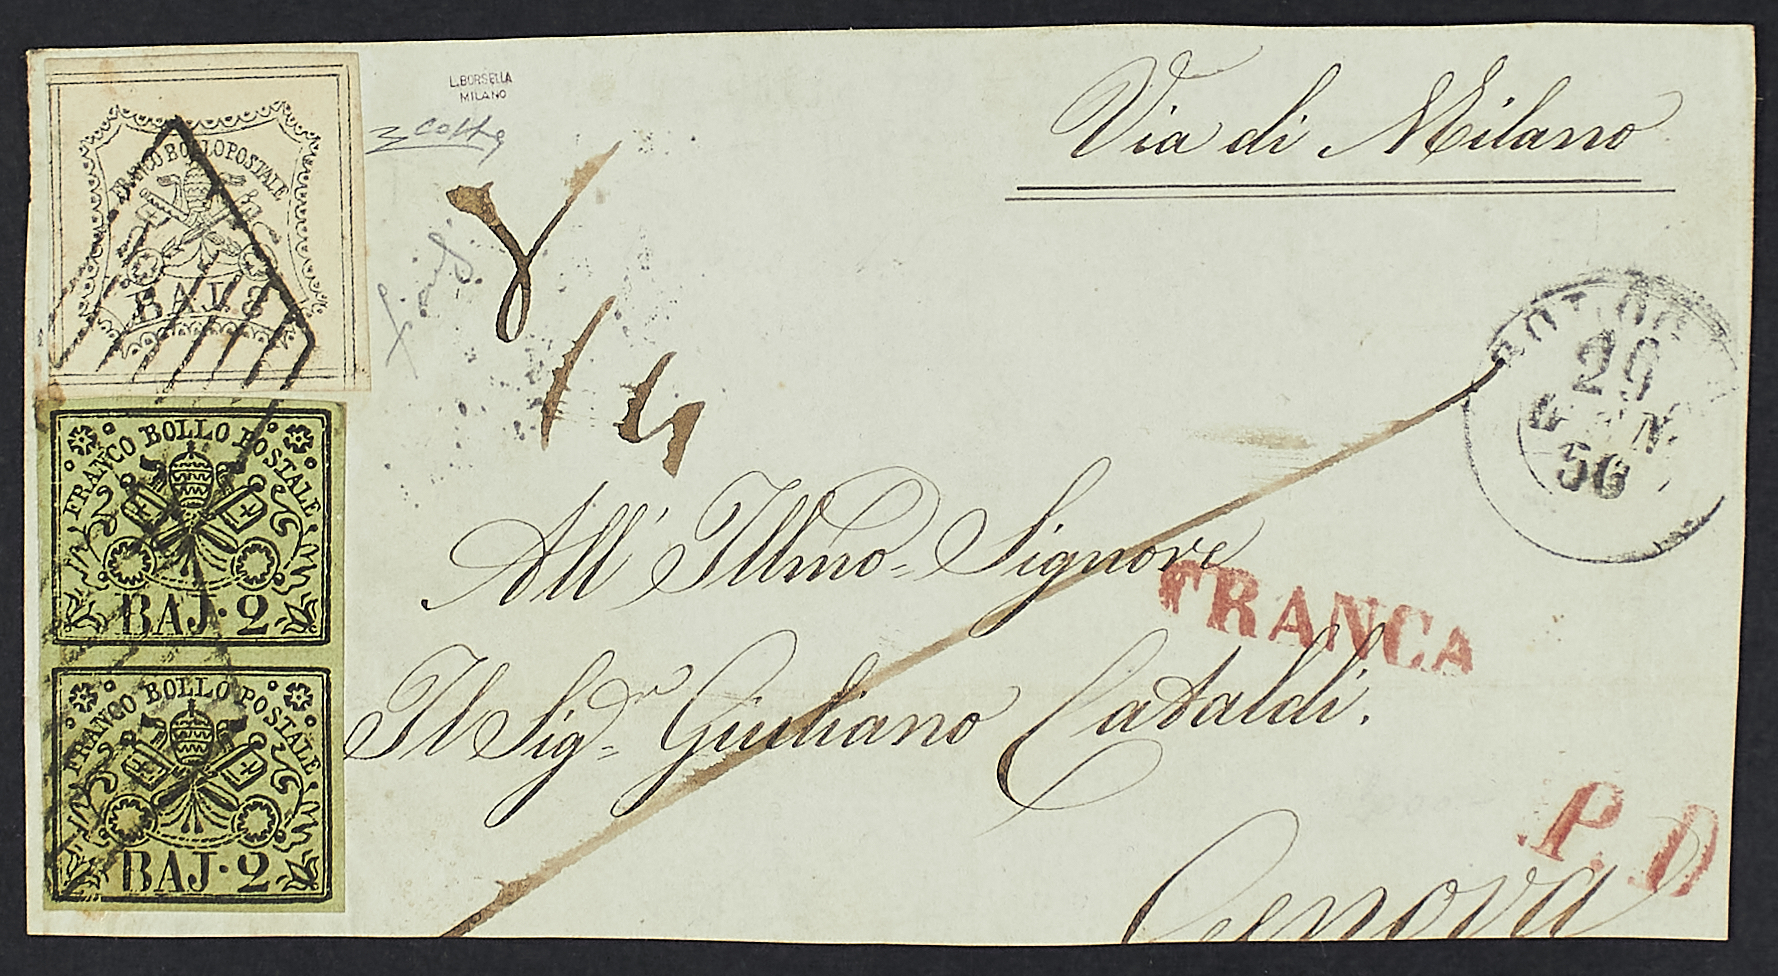 L. BORSELLA
MILANO
Via di Milano
FRANCO BOLLO POSTALE
BAJ. 8
8
14
29
GEN
56
FRANCO BOLLO POSTALE
BAJ. 2
All' Illmo= Signore
FRANCA
FRANCO BOLLO POSTALE
BAJ. 2
Il Sigr= Giuliano Cataldi.
P. D
Genova